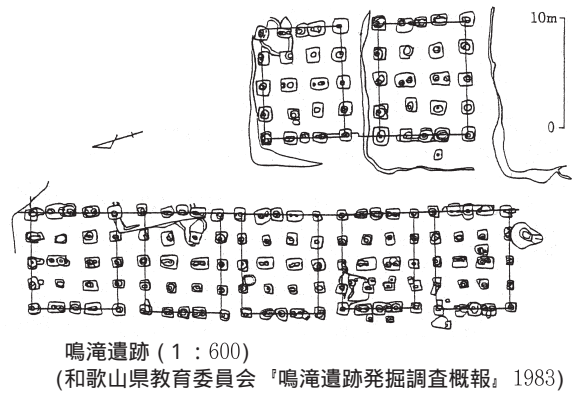 10m
0
鳴滝遺跡 (1:600)
(和歌山県教育委員会『鳴滝遺跡発掘調査概報』1983)